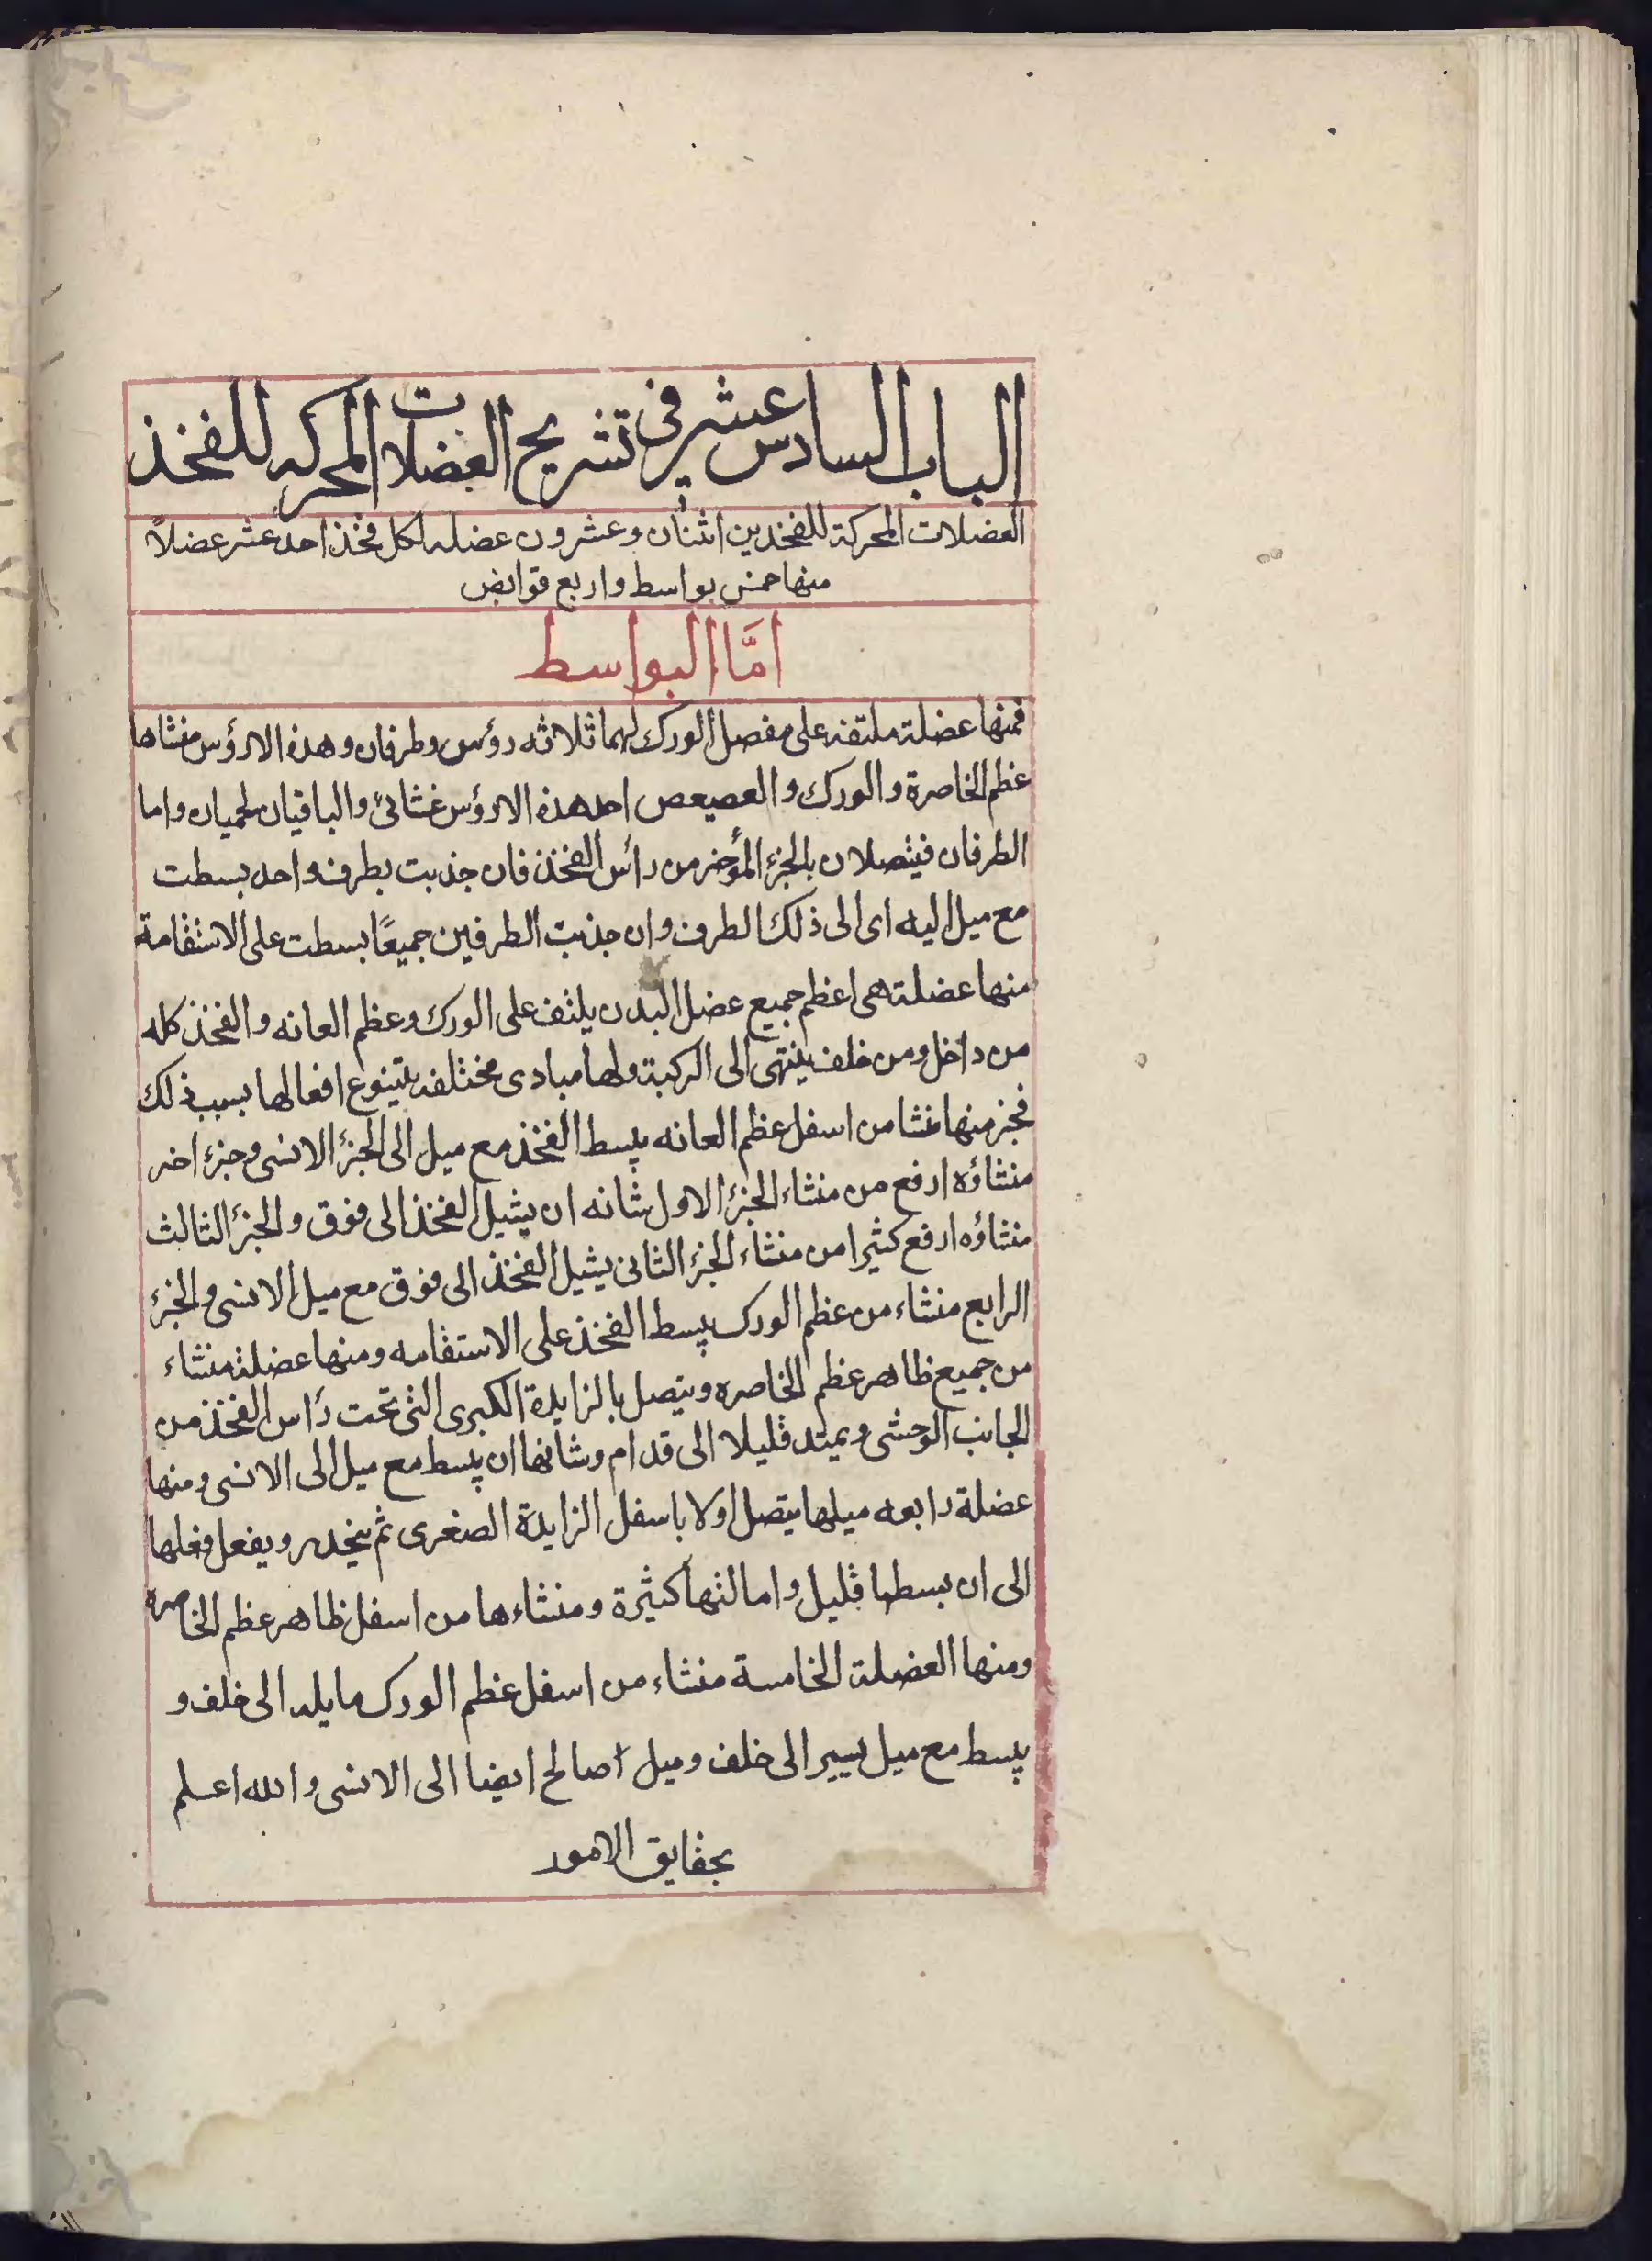 الباب السادس عشر في تشريح العضلات المحركه للفخذ
العضلات المحركة للفخدين اثنان وعشرون عضله لكل فخذ احد عشر عضلاً
منها خمس بواسط واربع قوابض
امَّا البواسط
فمنها عضلة ملتفه على مفصل الورك لهما ثلاثه رؤس وطرفان وهذه الارؤس منشاها
عظم الخاصرة والورك والعصيعص احد هذه الارؤس غشائى والباقيان لحميان واما
الطرفان فيتصلان بالجزء المؤخر من رأس الفخذ فان جذبت بطرف واحد بسطت
مع ميل اليه اى الى ذلك الطرف وان جذبت الطرفين جميعًا بسطت على الاستقامة
منها عضلة هى اعظم جميع عضل البدن يلتف على الورك وعظم العانه والفخذ كله
من داخل ومن خلف ينتهى الى الركبة ولها مبادى مختلفه يتنوع افعالها بسبب ذلك
فجز منها منشا من اسفل عظم العانه يبسط الفخذ مع ميل الى الجزء الانسى وجزء اخر
منشاؤه ارفع من منشاء الجزء الاول شانه ان يشيل الفخذ الى فوق والجزء الثالث
منشاؤه ارفع كثيرا من منشاء الجزء الثانى يشيل الفخذ الى فوق مع ميل الانسى والجزء
الرابع منشاء من عظم الورك يبسط الفخذ على الاستقامه ومنها عضلة منشاء
من جميع ظاهر عظم الخاصره ويتصل بالزايدة الكبرى التى تحت رأس الفخذ من
الجانب الوحشى ويمتد قليلا الى قدام وشانها ان يبسط مع ميل الى الانسى ومنها
عضلة رابعه ميلها يتصل اولا باسفل الزايدة الصغرى ثم ينحدر ويفعل فعلها
الى ان بسطها قليل وامالتها كثيرة ومنشاءها من اسفل ظاهر عظم الخاصره
ومنها العضلة الخامسة منشاء من اسفل عظم الورك مايله الى خلف و
يبسط مع ميل يسير الى خلف وميل اصالح ايضا الى الانسى والله اعلم
بحقايق الامور